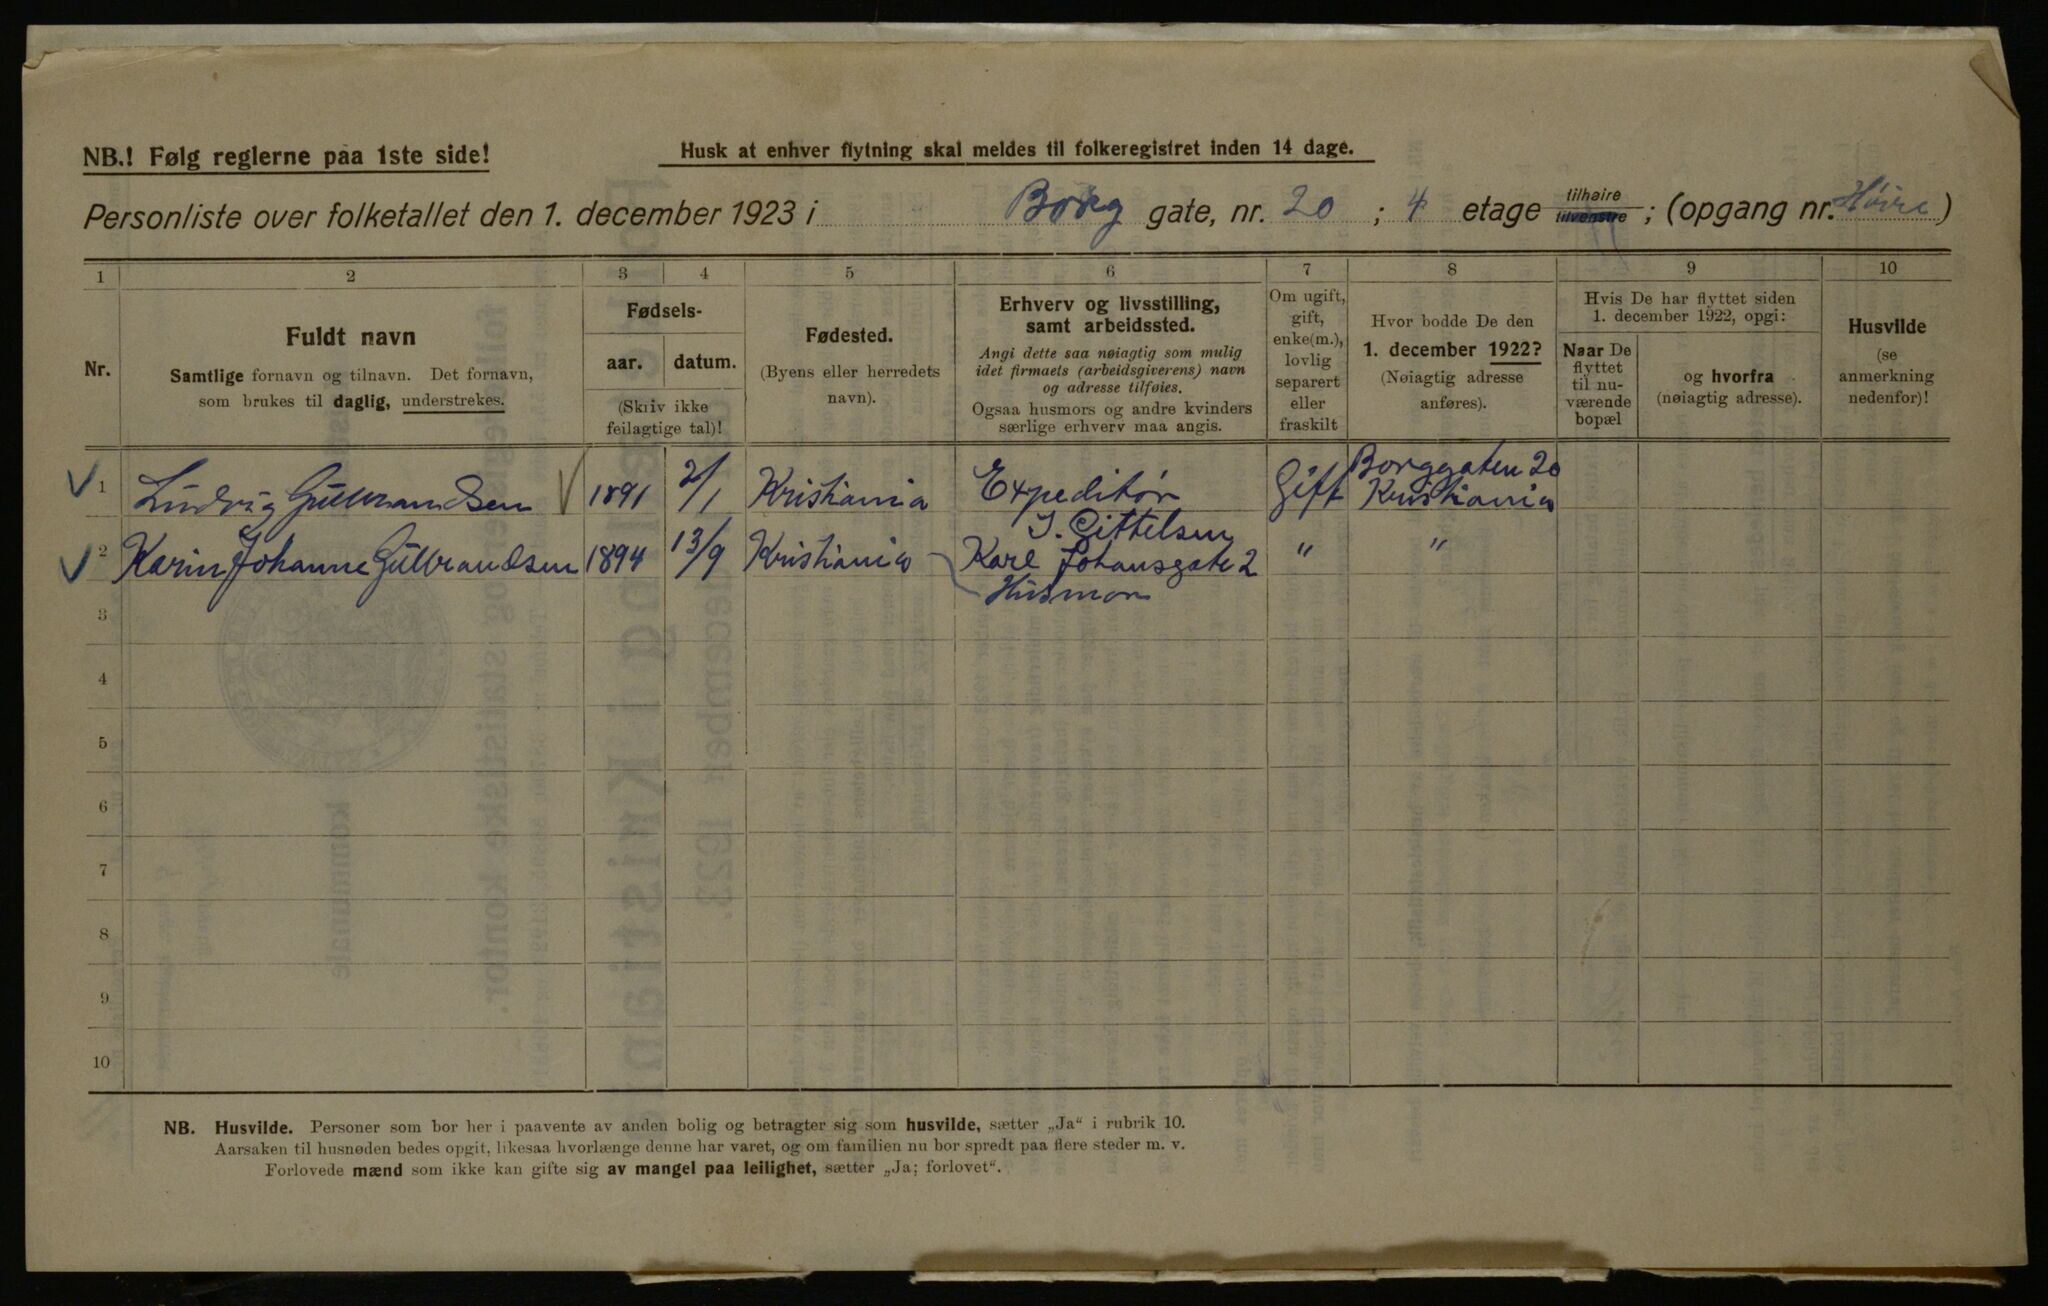 NB.! Følg reglerne paa 1ste side!
Husk at enhver flytning skal meldes til folkeregistret inden 14 dage.
Personliste over folketallet den 1. december 1923 i Borg gate, nr. 20 ; 4 etage tilhøire tilvenstre ; (opgang nr. Høire)
1 2 3 4 5 6 7 8 9 10
Nr.
Fuldt navn
Samtlige fornavn og tilnavn. Det fornavn,
som brukes til daglig, understrekes.
Fødsels-
aar. datum.
(Skriv ikke
feilagtige tal)!
Fødested.
(Byens eller herredets
navn).
Erhverv og livsstilling,
samt arbeidssted.
Angi dette saa nøiagtig som mulig
idet firmaets (arbeidsgiverens) navn
og adresse tilføies.
Ogsaa husmors og andre kvinders
særlige erhverv maa angis.
Om ugift,
gift,
enke(m.),
lovlig
separert
eller
fraskilt
Hvor bodde De den
1. december 1922?
(Nøiagtig adresse
anføres).
Hvis De har flyttet siden
1. december 1922, opgi:
Naar De
flyttet
til nu-
værende
bopæl
og hvorfra
(nøiagtig adresse).
Husvilde
(se
anmerkning
nedenfor)!
1 Ludvig Gulbrandsen 1891 2/1 Kristiania Expeditør Gift Borggaten 20
Kristiania
J. Gittelsen
2 Karin Johanne Gulbrandsen 1894 13/9 Kristiania Karl Johansgate 2 " "
Husmor
3
4
5
6
7
8
9
10
NB. Husvilde. Personer som bor her i paavente av anden bolig og betragter sig som husvilde, sætter „Ja“ i rubrik 10.
Aarsaken til husnøden bedes opgit, likesaa hvorlænge denne har varet, og om familien nu bor spredt paa flere steder m. v.
Forlovede mænd som ikke kan gifte sig av mangel paa leilighet, sætter „Ja; forlovet“.